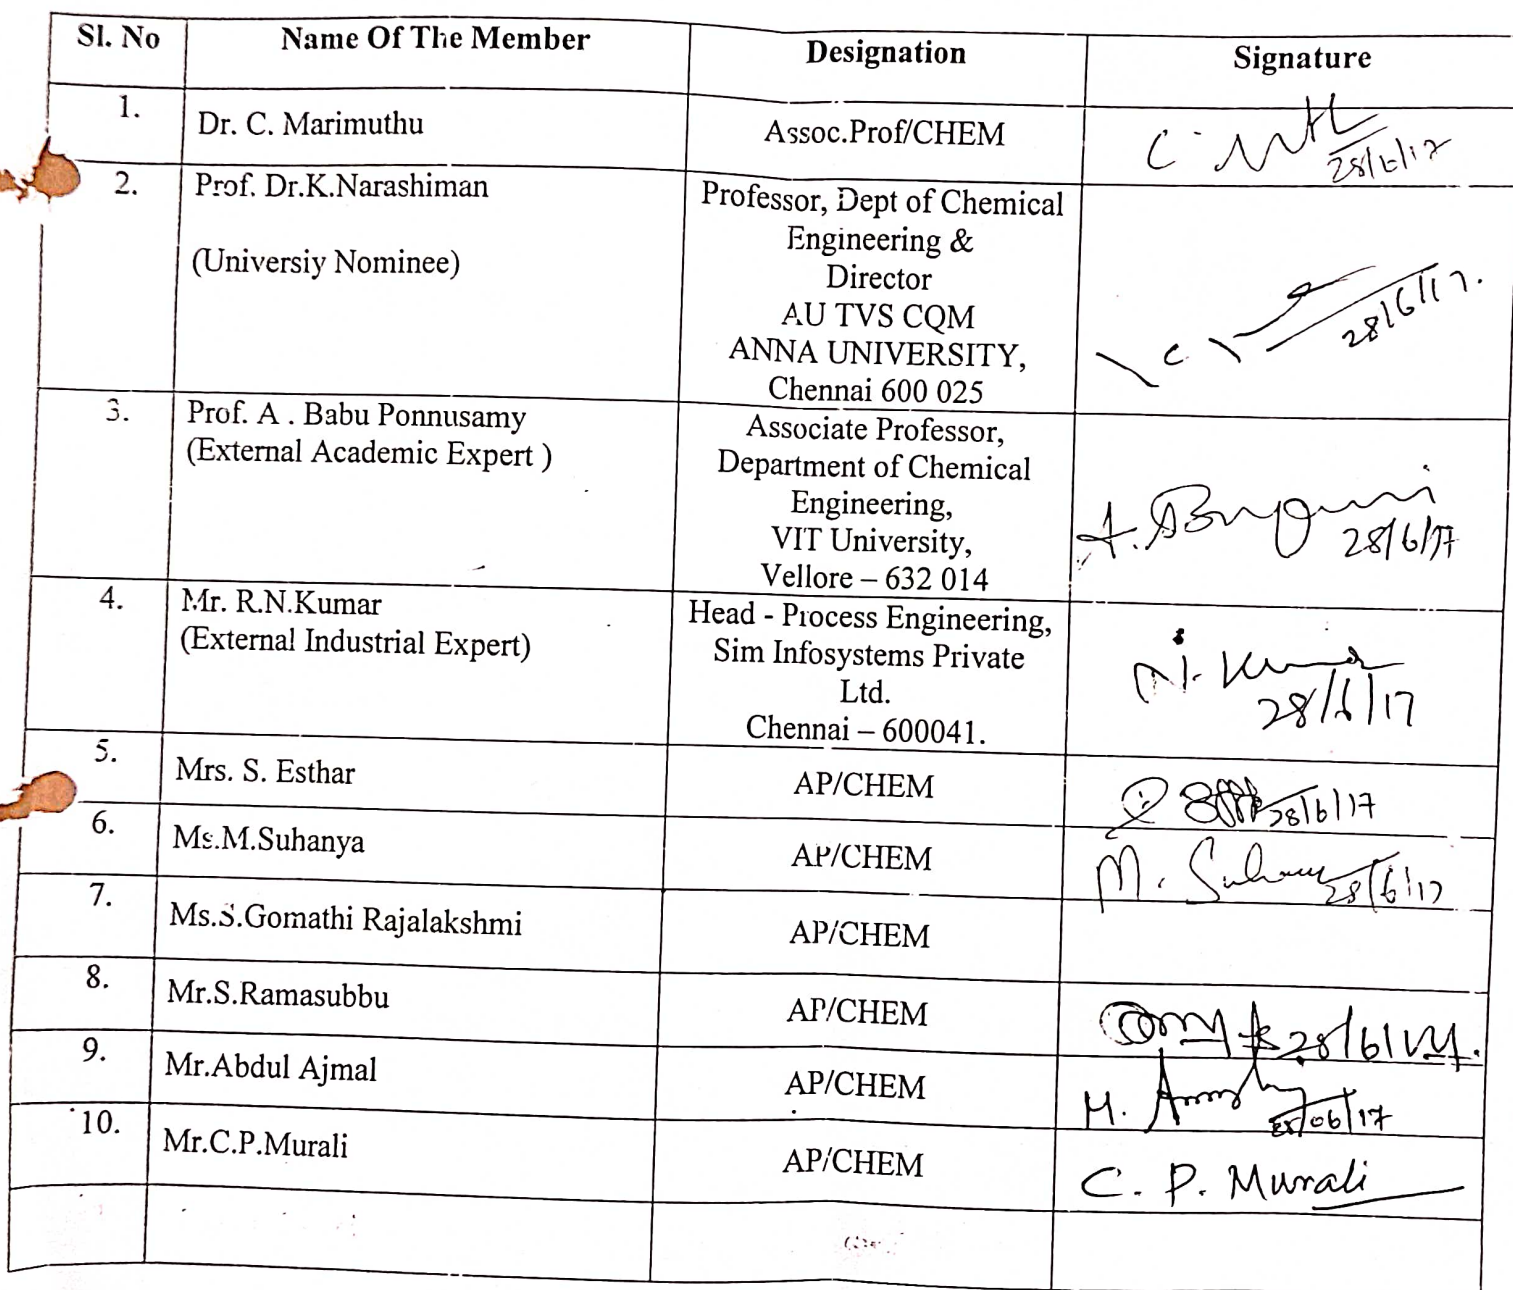 Sl. No Name Of The Member Designation Signature
1. Dr. C. Marimuthu Assoc.Prof/CHEM C.
28/6/17
2. Prof. Dr.K.Narashiman
(Universiy Nominee)
Professor, Dept of Chemical
Engineering &
Director
AU TVS CQM
ANNA UNIVERSITY,
Chennai 600 025
28/6/17.
3. Prof. A . Babu Ponnusamy
(External Academic Expert )
Associate Professor,
Department of Chemical
Engineering,
VIT University,
Vellore – 632 014
A.
28/6/17
4. Mr. R.N.Kumar
(External Industrial Expert)
Head - Process Engineering,
Sim Infosystems Private
Ltd.
Chennai – 600041.
N. Kumar
28/6/17
5. Mrs. S. Esthar AP/CHEM 28/6/17
6. Ms.M.Suhanya AP/CHEM M. Suhanya 28/6/17
7. Ms.S.Gomathi Rajalakshmi AP/CHEM
8. Mr.S.Ramasubbu AP/CHEM 28/6/17.
9. Mr.Abdul Ajmal AP/CHEM M.
28/06/17
10. Mr.C.P.Murali AP/CHEM C. P. Murali